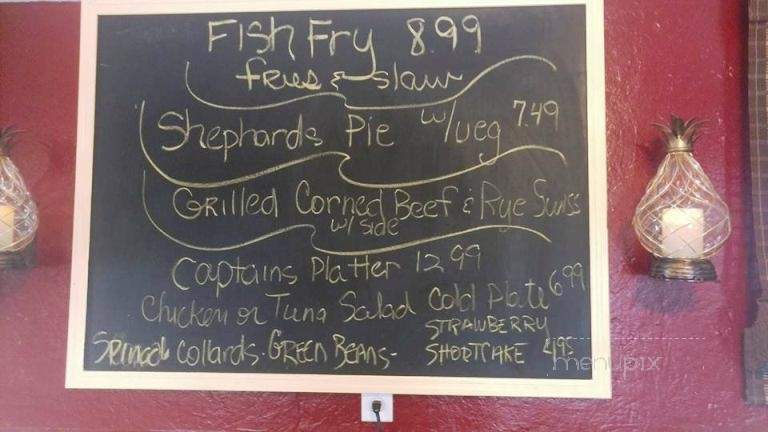 Fish Fry 8.99
fries & slaw
Shephards Pie w/veg 7.49
Grilled Corned Beef & Rye Swiss
w/ side
Captains Platter 12.99
Chicken or Tuna Salad Cold Plate 6.99
Collards. Green Beans-
STRAWBERRY
SHORTCAKE 4.95
menupix